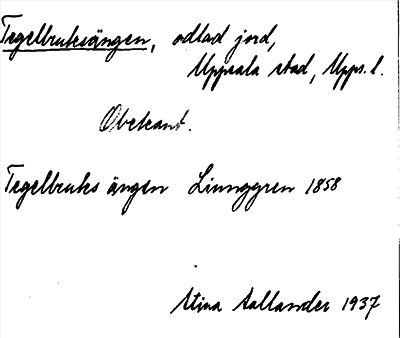 Tegelbruksängen, odlad jord,
Uppsala stad, Upps. l.
Obekant.
Tegelbruks ängen Linnggren 1858
Stina Sallander 1937